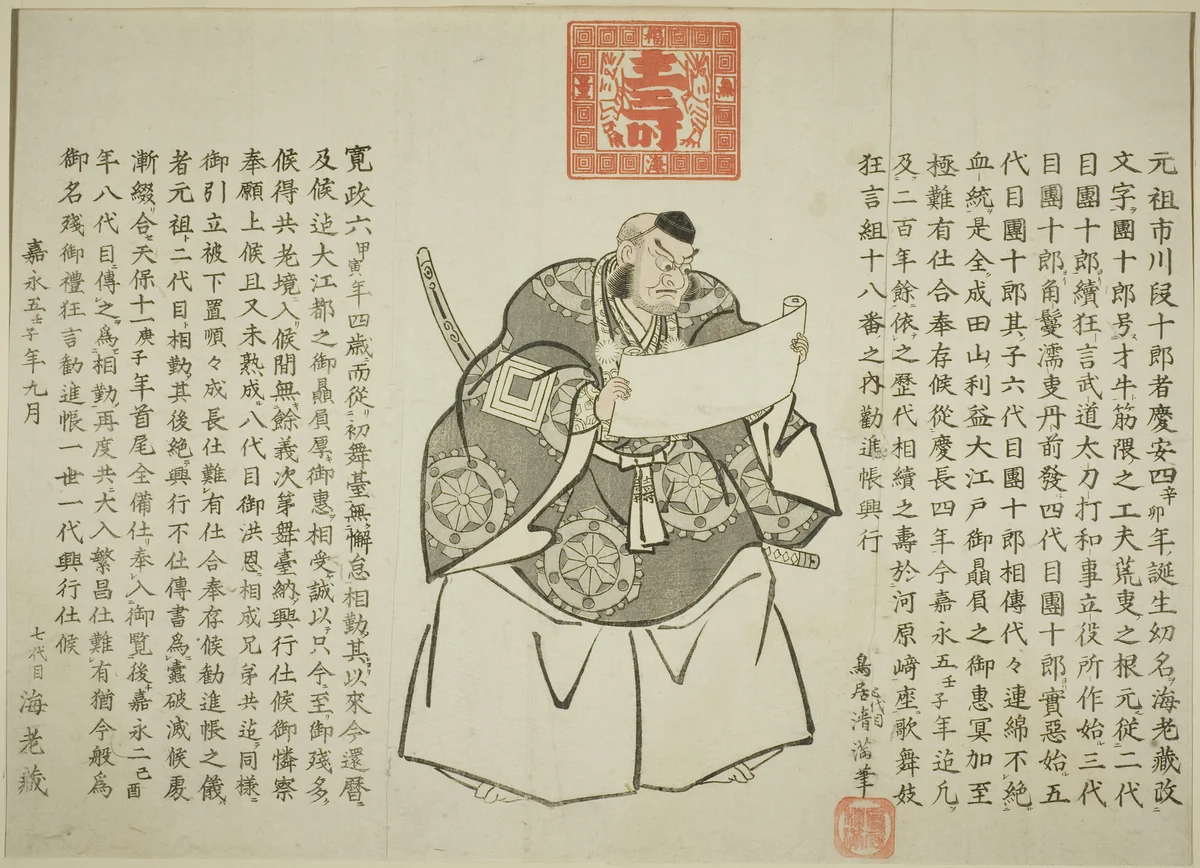 元祖市川段十郎者慶安四辛卯年誕生幼名海老藏改
文字團十郎号才牛筋隈之工夫荒叓之根元従二代
目團十郎續狂言武道太刀打和事立役所作始三代
目團十郎角鬘濡叓丹前發四代目團十郎實惡始五
代目團十郎其子六代目團十郎相傳代々連綿不絶
血統是全成田山利益大江戸御贔屓之御惠冥加至
極難有仕合奉存候從慶長四年今嘉永五壬子年迠凡
及二百年餘依之歴代相續之壽於河原﨑座歌舞妓
狂言組十八番之内勸進帳興行
七代目
鳥居清満筆
壽
寛政六甲寅年四歳而從初舞臺無懈怠相勤其以來今還暦
及候迠大江都之御贔屓厚御惠相受誠以只今至御殘多
候得共老境入候間無餘義次第舞臺納興行仕候御憐察
奉願上候且又未熟成八代目御洪恩相成兄弟共迠同様
御引立被下置順々成長仕難有仕合奉存候勸進帳之儀
者元祖二代目相勤其後絶興行不仕傳書爲蠹破滅候処
漸綴合天保十一庚子年首尾全備仕奉入御覧後嘉永二己酉
年八代目傳之爲相勤再度共大入繁昌仕難有猶今般爲
御名殘御禮狂言勸進帳一世一代興行仕候
嘉永五壬子年九月
七代目 海老藏